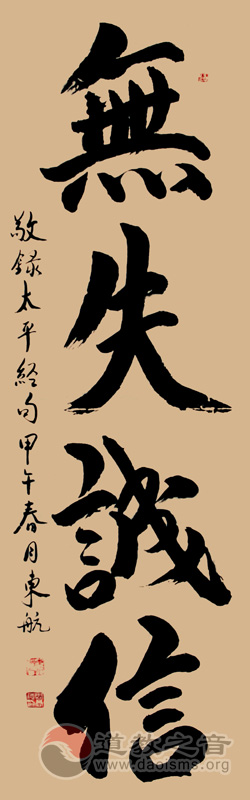 無失誠信
敬錄太平經句甲午春月東航
道教之音
www.daoisms.org